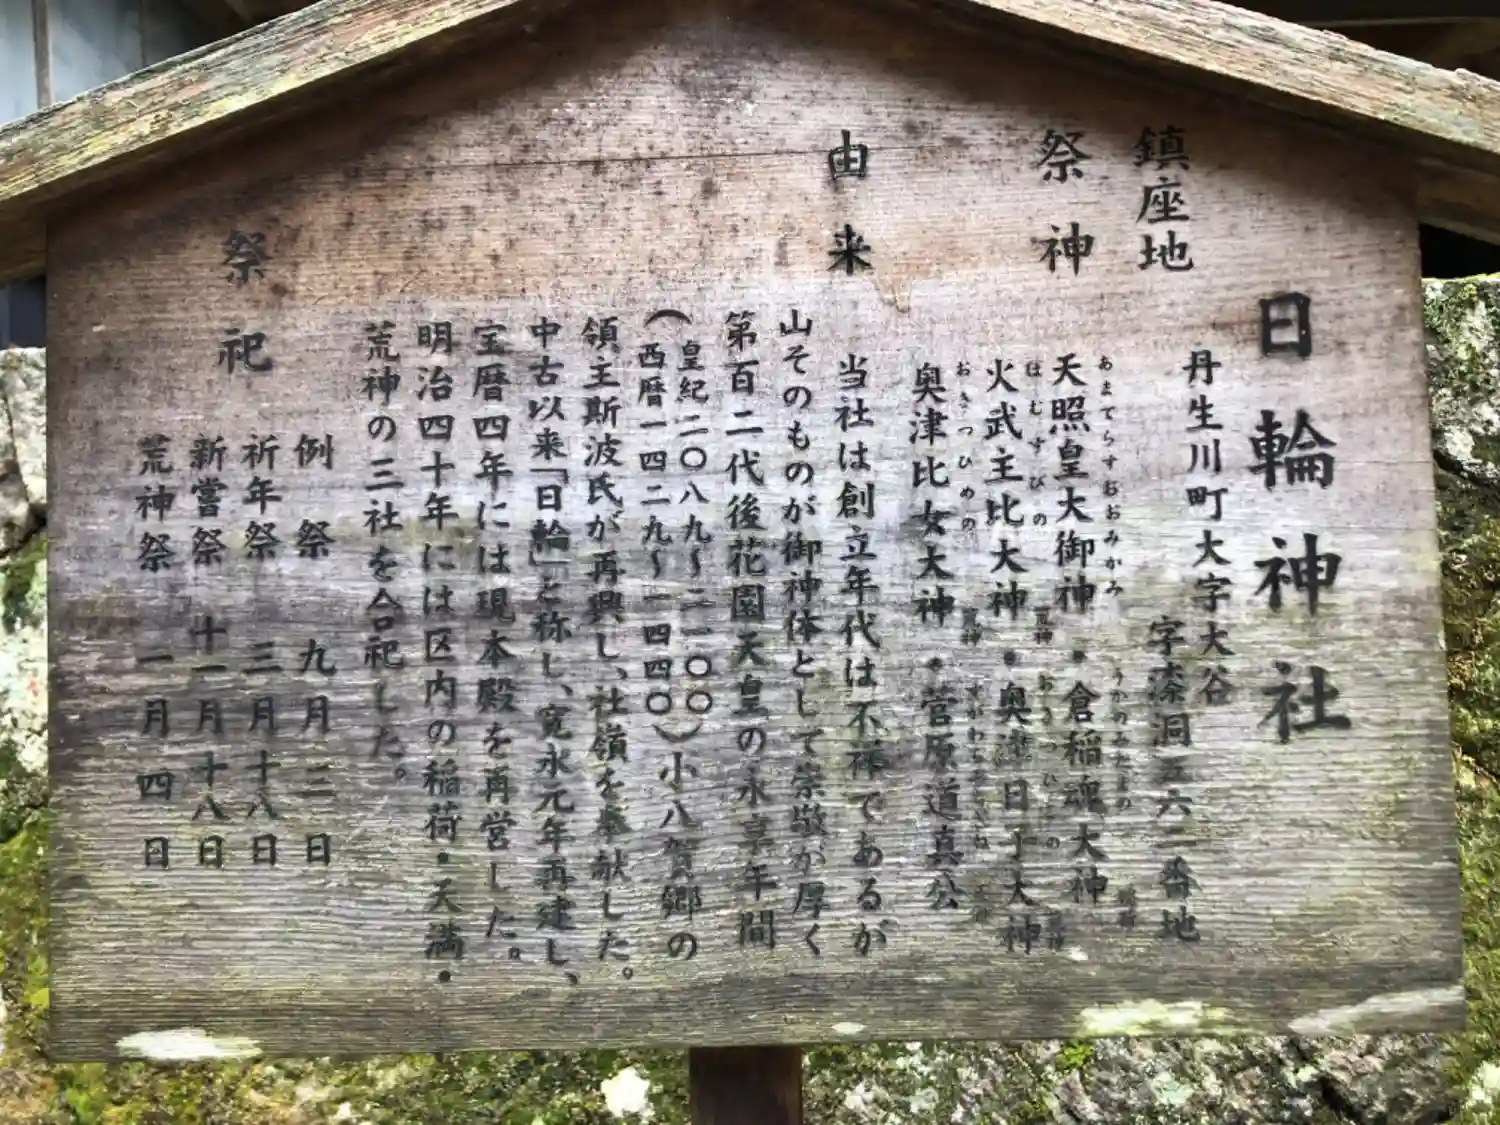 日輪神社
鎮座地
丹生川町大字大谷
字漆洞五六二番地
祭神
あまてらすおおみかみ
天照皇大御神・倉稲魂大神
うかのみたまの
ほむすびの
火武主比大神・奥津日子大神
荒神
おきつひめの
奥津比女大神・菅原道真公
荒神
由来
当社は創立年代は不祥であるが
山そのものが御神体として崇敬が厚く
第百二代後花園天皇の永享年間
(皇紀二〇八九〜二一〇〇
西暦一四二九〜一四四〇)小八賀郷の
領主斯波氏が再興し、社嶺を奉献した。
中古以来「日輪」と称し、寛永元年再建し、
宝暦四年には現本殿を再営した。
明治四十年には区内の稲荷・天満・
荒神の三社を合祀した。
祭祀
例祭 九月二日
祈年祭 三月十八日
新嘗祭 十一月十八日
荒神祭 一月四日